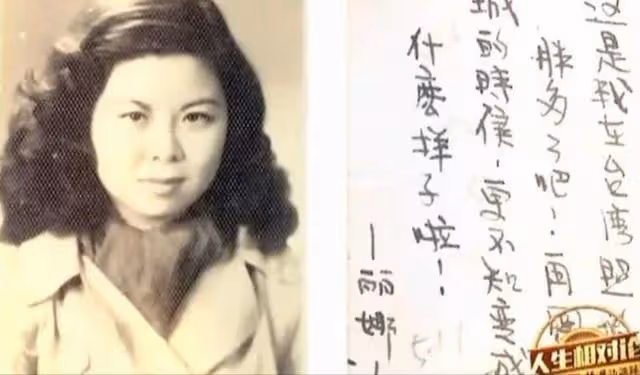 这是我在台湾照
胖多了吧！再
城的時候，更不知变成
什麽样子啦！
—丽娜
人生相对论